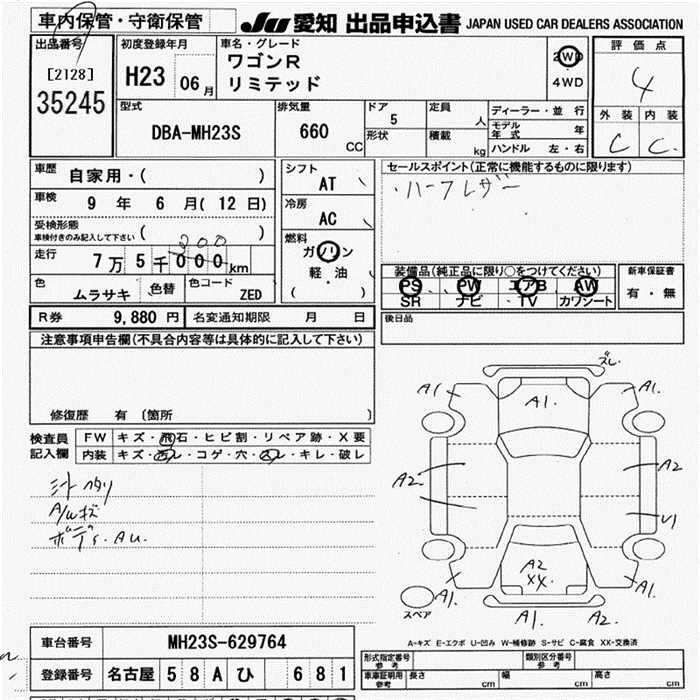 車内保管・守衛保管
JU 愛知 出品申込書 JAPAN USED CAR DEALERS ASSOCIATION
出品番号
[2128]
35245
初度登録年月
H23 06月
車名・グレード
ワゴンR
リミテッド
2WD
・
4WD
評価点
4
外装 内装
C C.
型式
DBA-MH23S
排気量
660 CC
ドア
5
形状
定員 人
積載 kg
ディーラー・並行
モデル年式 年
ハンドル 左・右
車歴 自家用・( )
車検 9 年 6 月( 12 日)
受検形態
車検付きのみ記入して下さい ( )
200
走行 7万5千000km
色 ムラサキ 色替 色コード ZED
シフト
AT
冷房
AC
燃料
ガソリン
軽・油
( )
セールスポイント(正常に機能するものに限ります)
・ハーフレザー
装備品(純正品に限り○をつけてください)
PS PW エアB AW
SR ナビ TV カワシート
新車保証書
有・無
R券 9,880 円 名変通知期限 月 日
後日品
注意事項申告欄(不具合内容等は具体的に記入して下さい)
修復歴 有 〔箇所 〕
検査員
記入欄
FW キズ・飛石・ヒビ割・リペア跡・X要
内装 キズ・汚レ・コゲ・穴・スレ・キレ・破レ
A/Wキズ
ボディS. AU.
ズレ.
A1. A1. A1.
A2. A2
U1
A2
XX.
A1. A1.
A1. A2
スペア
A-キズ E-エクボ U-凹み W-補修跡 S-サビ C-腐食 XX-交換済
車台番号 MH23S-629764
登録番号 名古屋 58A ひ 681
形式指定番号
参考
類別区分番号
参考
車庫証明用
参考
長さ cm 幅 cm 高さ cm